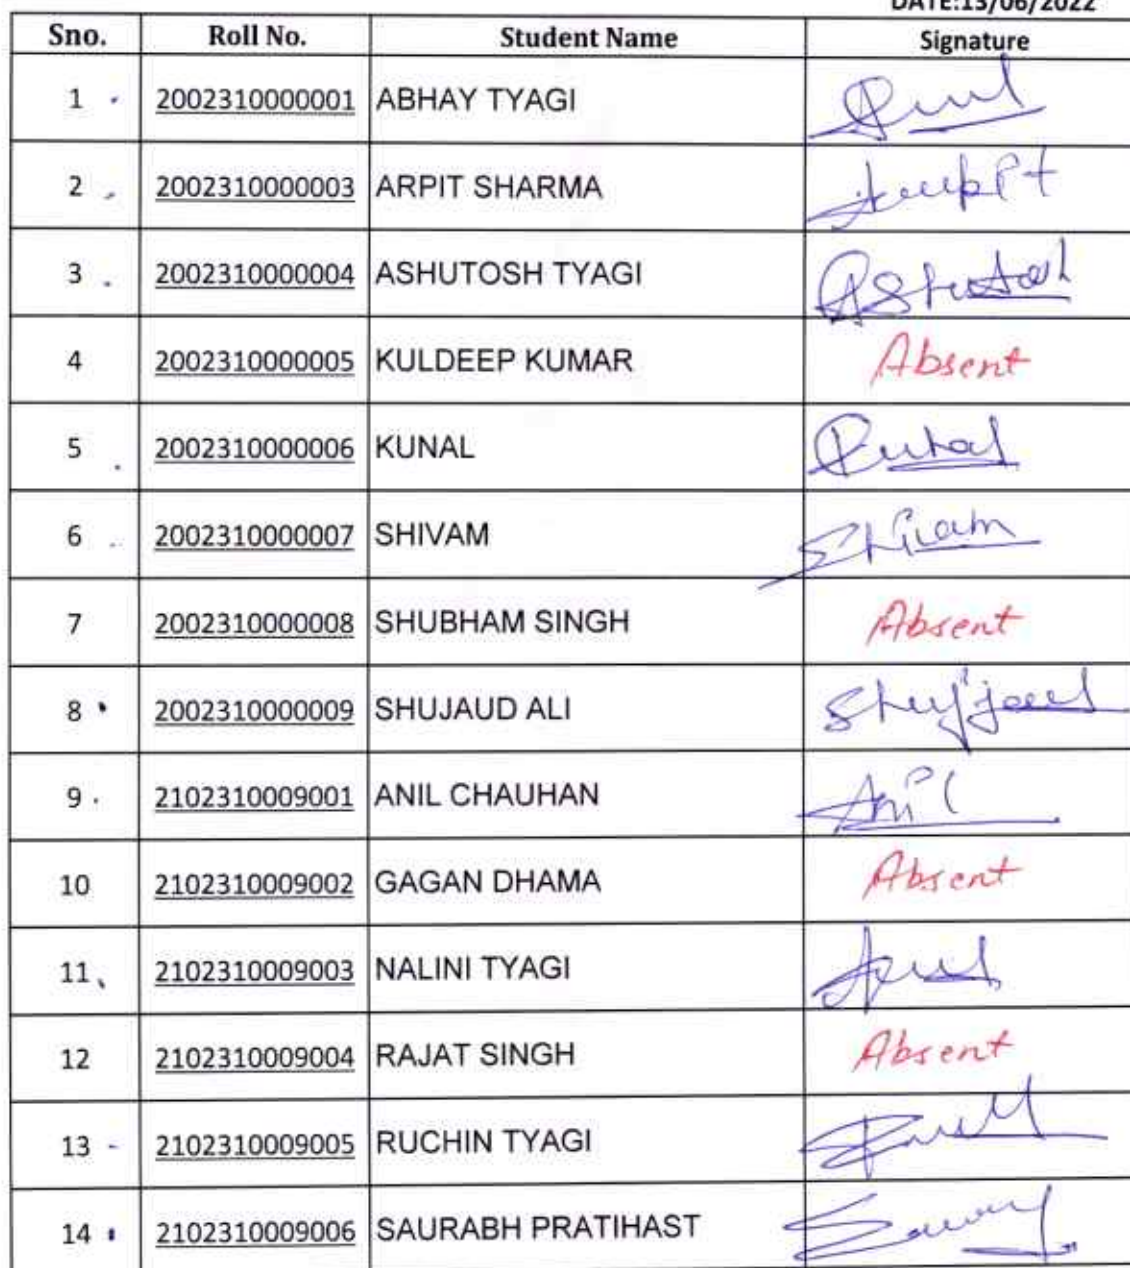 DATE:13/06/2022
Sno. Roll No. Student Name Signature
1 2002310000001 ABHAY TYAGI
2 2002310000003 ARPIT SHARMA
3 2002310000004 ASHUTOSH TYAGI Ashutosh
4 2002310000005 KULDEEP KUMAR Absent
5 2002310000006 KUNAL Kunal
6 2002310000007 SHIVAM Shivam
7 2002310000008 SHUBHAM SINGH Absent
8 2002310000009 SHUJAUD ALI Shujaud
9 2102310009001 ANIL CHAUHAN Anil
10 2102310009002 GAGAN DHAMA Absent
11 2102310009003 NALINI TYAGI
12 2102310009004 RAJAT SINGH Absent
13 2102310009005 RUCHIN TYAGI
14 2102310009006 SAURABH PRATIHAST